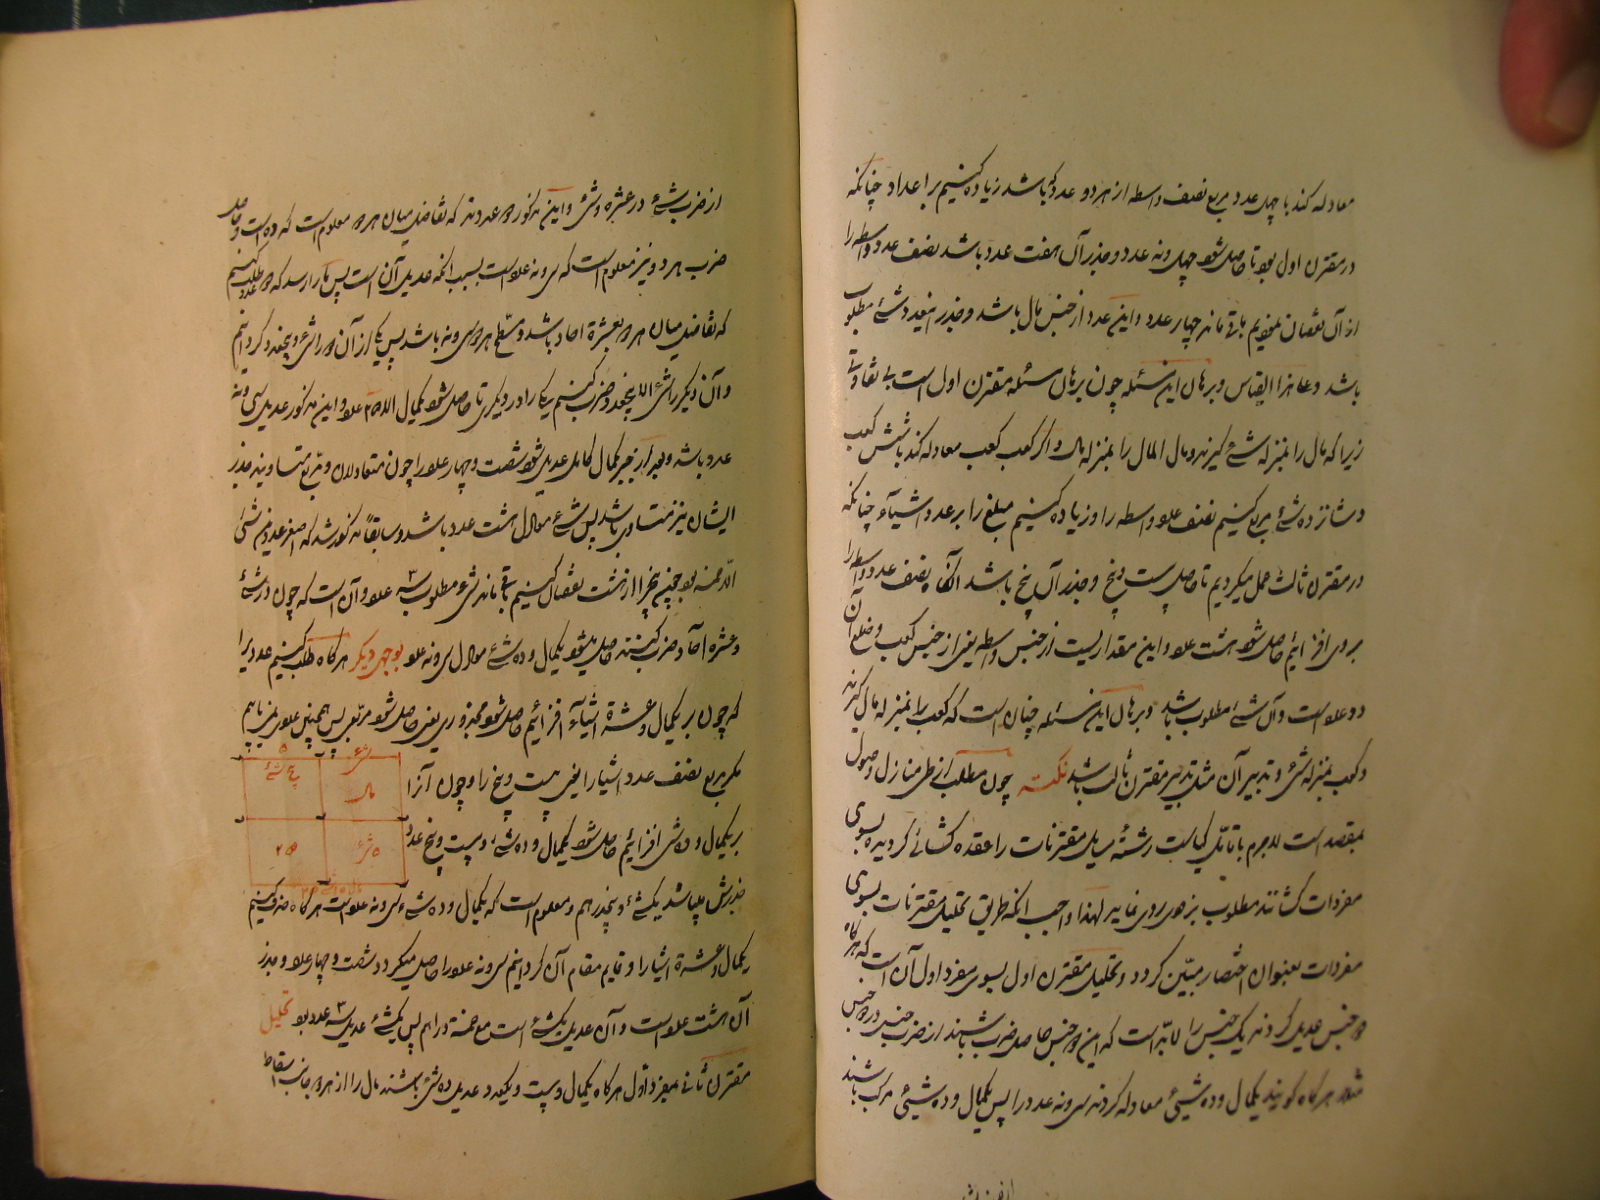 معادله کند با چهل عدد مربع نصف واسطه از هر دو عدد کو باشد زیاده کنیم بر اعداد چنانکه
در مقترن اول بود تا حاصل شود چهل و نه عدد و جذر آن هفت عدد باشد نصف عدد واسطه را
از آن نقصان نمودیم باقی ماند چهار عدد و این عدد از جنس مال باشد و جذر او یعنی دو شئ مطلوب
باشد و علی هذا القیاس و برهان این مسئله چون برهان مسئله مقترن اول است بی تفاوتی
زیرا که مال را بمنزله شئ گیرند و مال المال را بمنزله مال و اگر کعب کعب معادله کند با شش کعب
و شانزده شئ مربع کنیم نصف عدد واسطه را و زیاده کنیم مبلغ را بر عدد اشیاء چنانکه
در مقترن ثالث عمل میکردیم تا حاصل بیست و پنج و جذر آن پنج باشد آنگاه نصف عدد واسطه را
بروی افزائیم حاصل شود هشت عدد و این مقداریست از جنس واسطه یعنی از جنس کعب و ضلع آن
دو عدد است و آن شئ مطلوب باشد و برهان این مسئله چنان است که کعب را بمنزله مال گیرند
و کعب بمنزله شئ و تدبیر آن مثل تدبیر مقترن ثالث باشد نکته چون مطلب از طی منازل وصول
بمقصد است لاجرم با تأملی رشته مسایل مقترنات را عقده گشائی کردیده بسوی
مفردات کشانند مطلوب بزودی روی نماید لهذا واجب آنکه طریق تحلیل مقترنات بسوی
مفردات بعنوان اختصار مبیّن گردد و تحلیل مقترن اول بسوی مفرد اول آن است که هرگاه
دو جنس عدیل گردند یک جنس را لابدّ است که این دو جنس حاصل ضرب باشند از ضرب جنس در دو جنس
مثلا هرگاه گویند یکمال و ده شیئ معادله کردند سی و نه عدد را پس یکمال و ده شیئ مرکب باشند
از ضرب شئ در عشره و شئ و این مذکور دو عددند که تفاضل میان هر دو معلوم است که ده است و حاصل
ضرب هر دو نیز معلوم است که سی و نه عدد است بسبب آنکه عدیل آن است پس ما را رسد که دو عدد طلب کنیم
که تفاضل میان هر دو بعشرة احاد باشد و مسطّح هر دو سی و نه باشد پس یکی از آن دو را شئ و پنجعدد گردانیم
و آن دیگر را شئ الا پنجعدد و ضرب کنیم یکی را در دیگری تا حاصل شود یکمال الا ۲۵ عدد و این مذکور عدیل سی و نه
عدد باشد و بعد از جبر یکمال کامل عدیل شود شصت و چهار عدد را چون متعادلان و مربع متساویند جذر
ایشان نیز متساوی باشد پس شئ معادل هشت عدد باشد و سابقاً مذکور شد که اصغر عددین شئ
الّا خمسه بود چون پنج را از هشت نقصان کنیم باقی ماند شئ مطلوب سه عدد و آن است که چون در شئ
و عشره آحاد ضرب کنند حاصل میشود یکمال و ده شئ معادل سی و نه عدد بوجهی دیگر هرگاه طلب کنیم عددیرا
که چون بر یکمال و عشرة اشیاء افزائیم حاصل شود مجذوری یعنی حاصل شود مربعی پس همچنین عدد نمی یابیم
۵ شئ
پنج شئ مال
مگر مربع نصف عدد اشیا را یعنی بیست و پنج را و چون آنرا
۲۵ ۵ شئ
بر یکمال و ده شئ افزائیم حاصل شود یکمال و ده شئ و بیست و پنج عدد
جذرش باشد یکشئ و پنجدرهم و معلوم است که یکمال و ده شئ سی و نه عدد است هرگاه حذف کنیم
یکمال و عشرة اشیا را و قایم مقام آن گردانیم سی و نه عدد را حاصل میگردد شصت و چهار عدد و جذر
آن هشت عدد است و آن عدیل یکشئ است مع خمسة دراهم پس یکشئ عدیل سه عدد بود تحلیل
مقترن ثانی بمفرد اول هرگاه یکمال و بیست و یکعدد عدیل ده شئ باشند مال را از هر دو جانب اسقاط